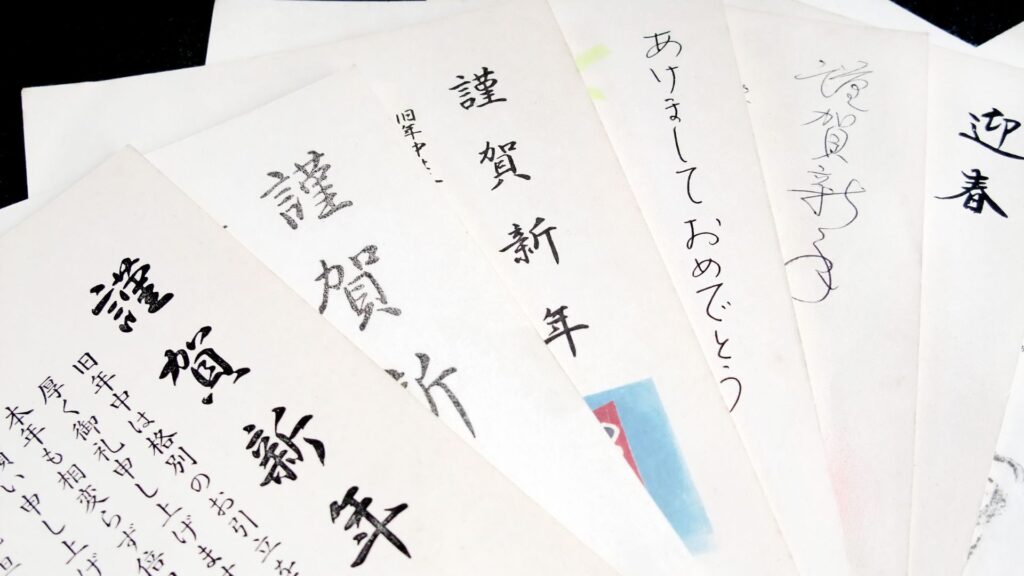 謹賀新年
旧年中は格別のお引立を
厚く御礼申し上げま
本年も相変らず倍
願い申し上げ
謹賀新
謹賀新年
旧年中
あけましておめでとう
謹賀新年
迎春